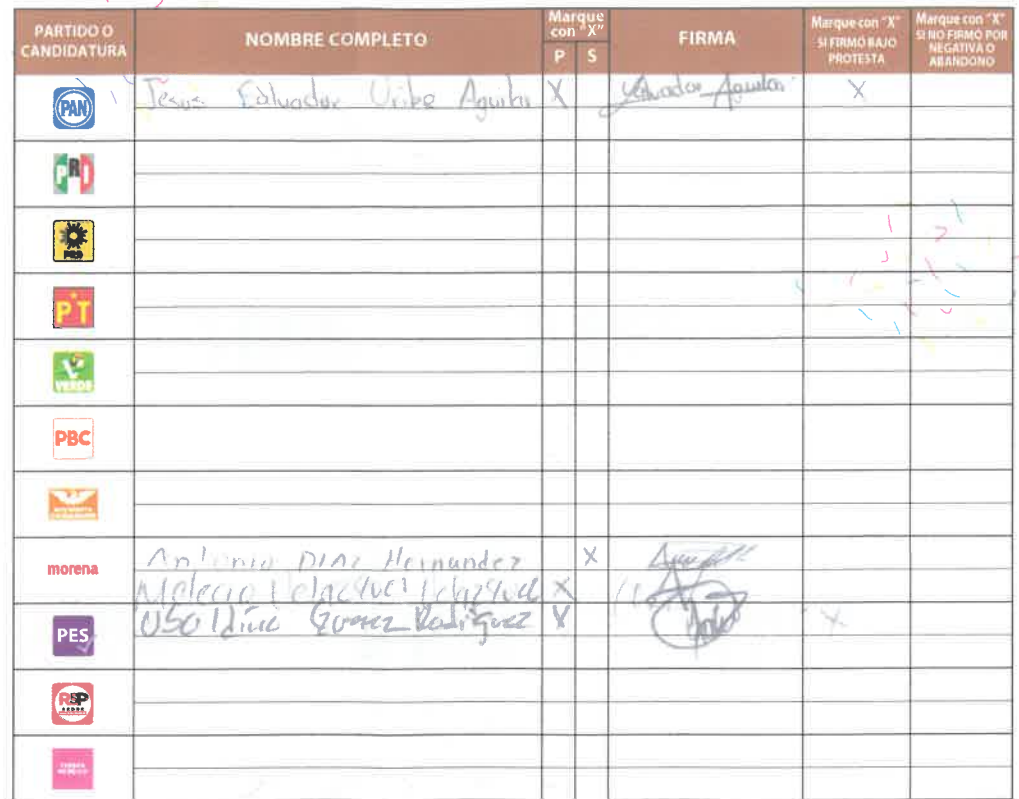 PARTIDO O CANDIDATURA
NOMBRE COMPLETO
Marque con "X"
P S
FIRMA
Marque con "X" SI FIRMÓ BAJO PROTESTA
Marque con "X" SI NO FIRMÓ POR NEGATIVA O ABANDONO
PAN Jesus Salvador Uribe Aguilar X Salvador Aguilar X
PRI
PRD
PT
VERDE
PBC
morena Antonio DIAZ Hernandez X
Melecio Velazquez Velazquez X
PES Gomez Rodriguez X X
RSP